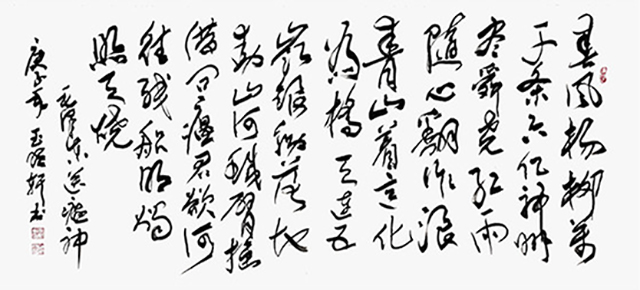 春风杨柳万
千条六亿神州
尽舜尧红雨
随心翻作浪
青山着意化
为桥天连五
岭银锄落地
动山河铁臂摇
借问瘟君欲何
往纸船明烛
照天烧
毛泽东送瘟神
庚子年玉 轩书